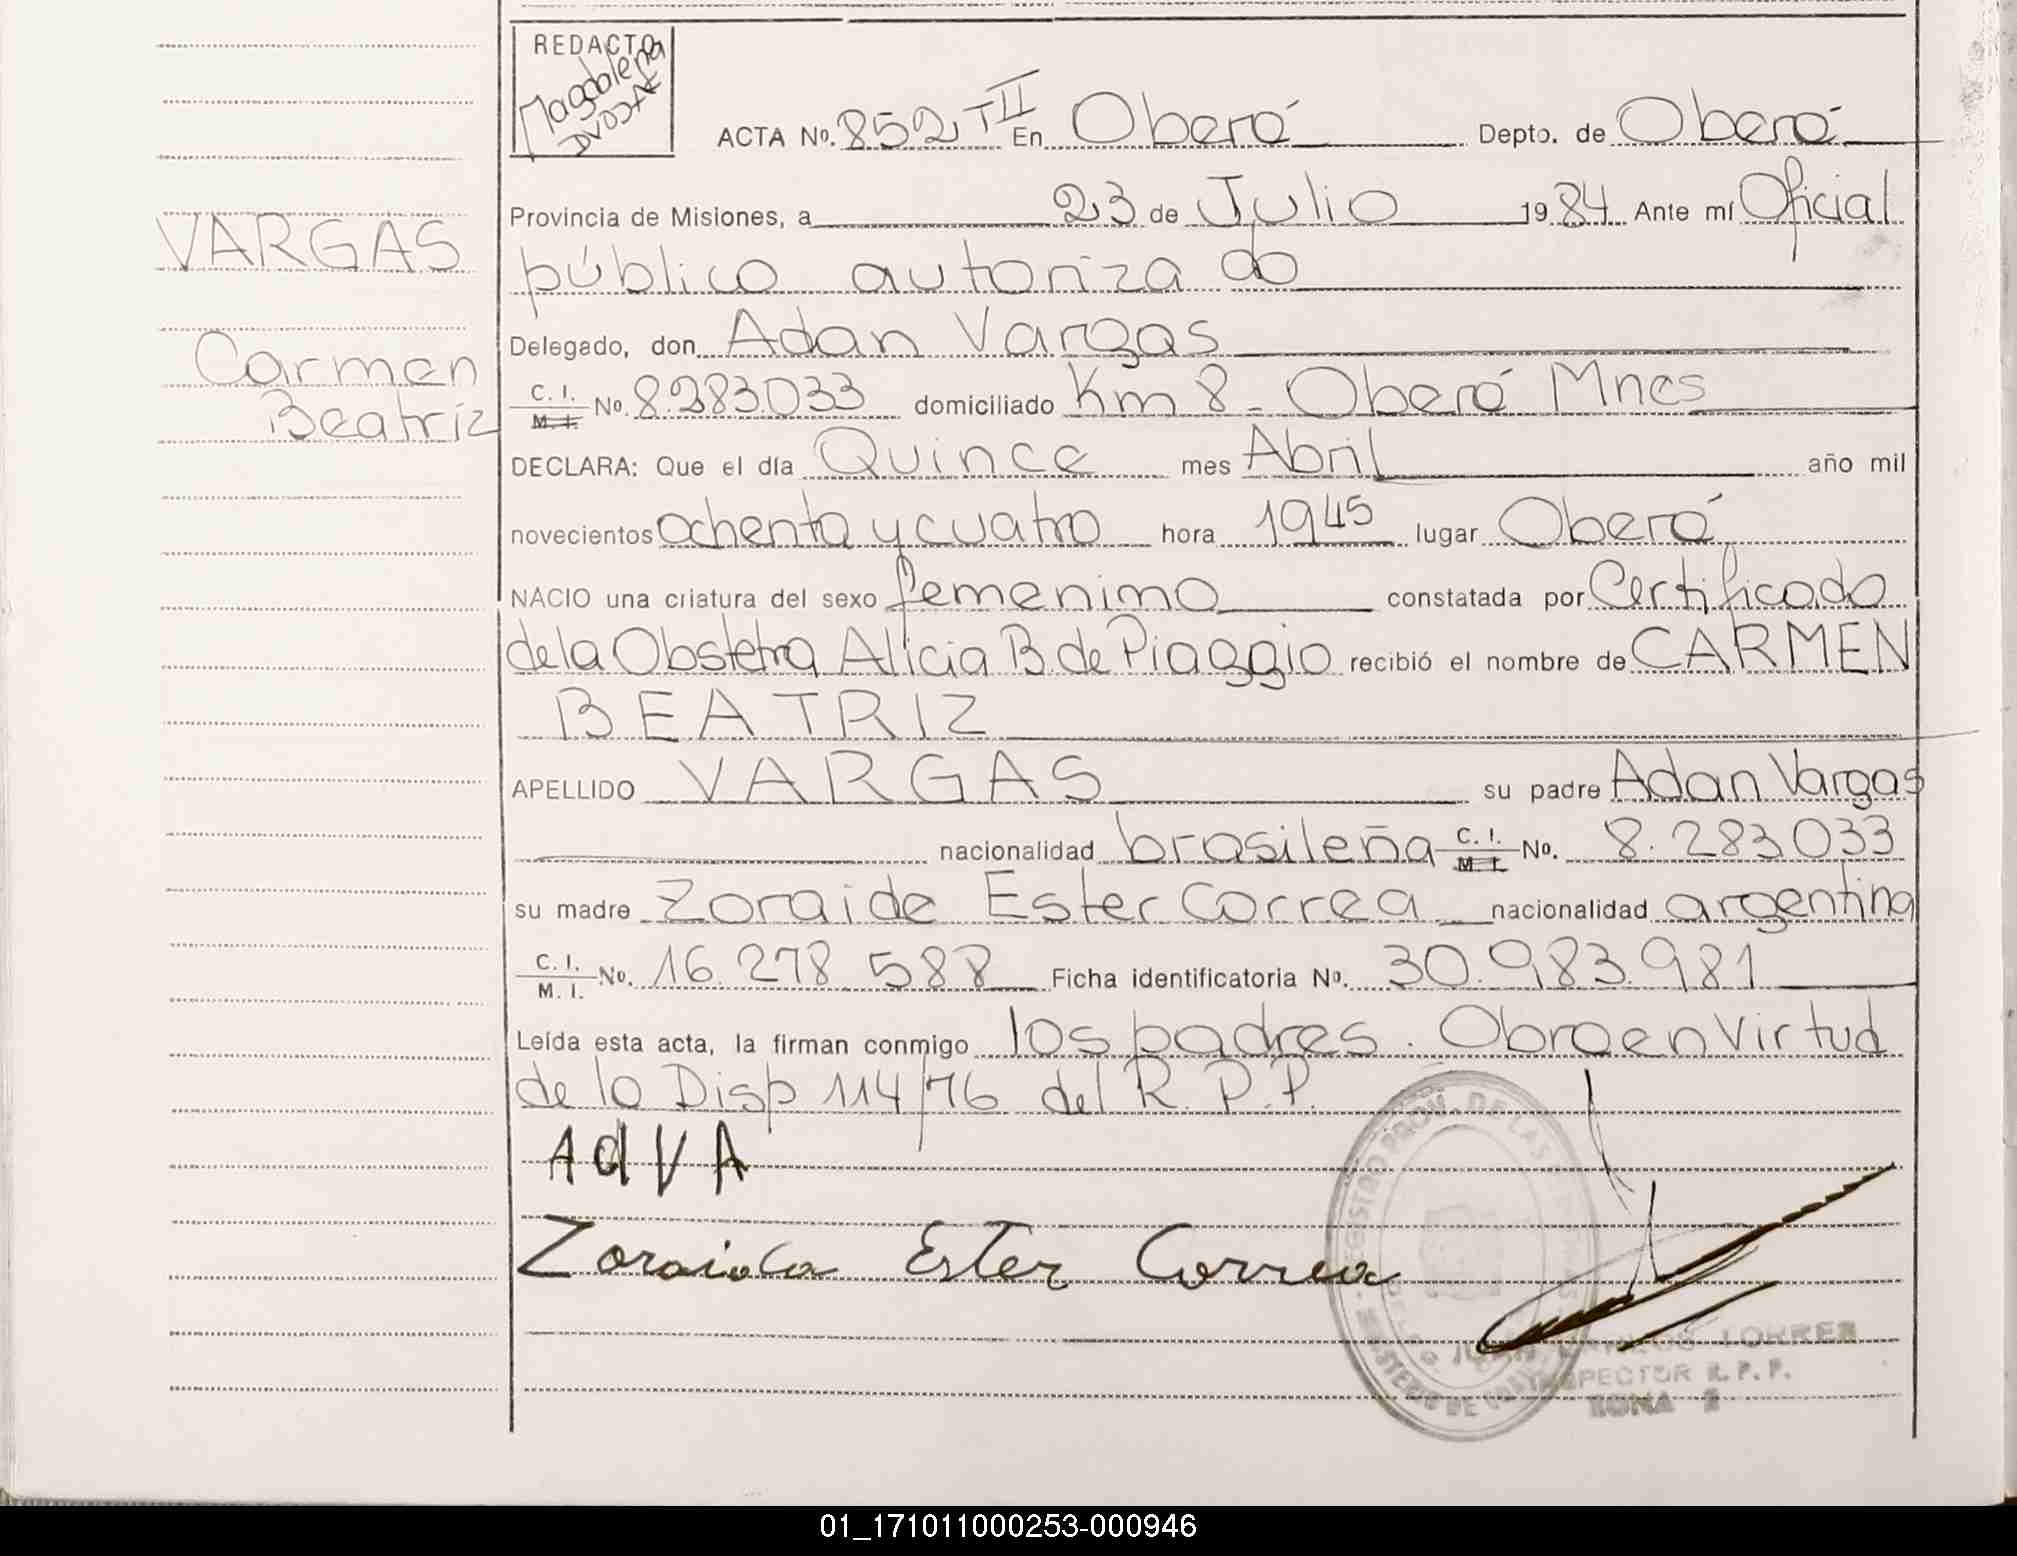 REDACTO
Magdalena
DVOJAK
ACTA Nº. 852 TII En Oberá Depto. de Oberá
Provincia de Misiones, a 23 de Julio 1984 Ante mí Oficial
público autorizado
Delegado, don Adan Vargas
C. I. M. I. No. 8.283.033 domiciliado Km 8 - Oberá Mnes
DECLARA: Que el día Quince mes Abril año mil
novecientos ochenta y cuatro hora 1945 lugar Oberá
NACIO una criatura del sexo femenino constatada por Certificado
de la Obstetra Alicia B. de Piaggio recibió el nombre de CARMEN
BEATRIZ
APELLIDO VARGAS su padre Adan Vargas
nacionalidad brasileña C. I. M. I. No. 8.283.033
su madre Zoraide Ester Correa nacionalidad argentina
C. I. M. I. No. 16.278.588 Ficha identificatoria Nº. 30.983.981
Leída esta acta, la firman conmigo los padres. Obro en virtud
de la Disp 114/76 del R. P. P.
AdVA
Zoraida Ester Correa
VARGAS
Carmen
Beatriz
TORRES
INSPECTOR R. P. P.
ZONA 2
01_171011000253-000946